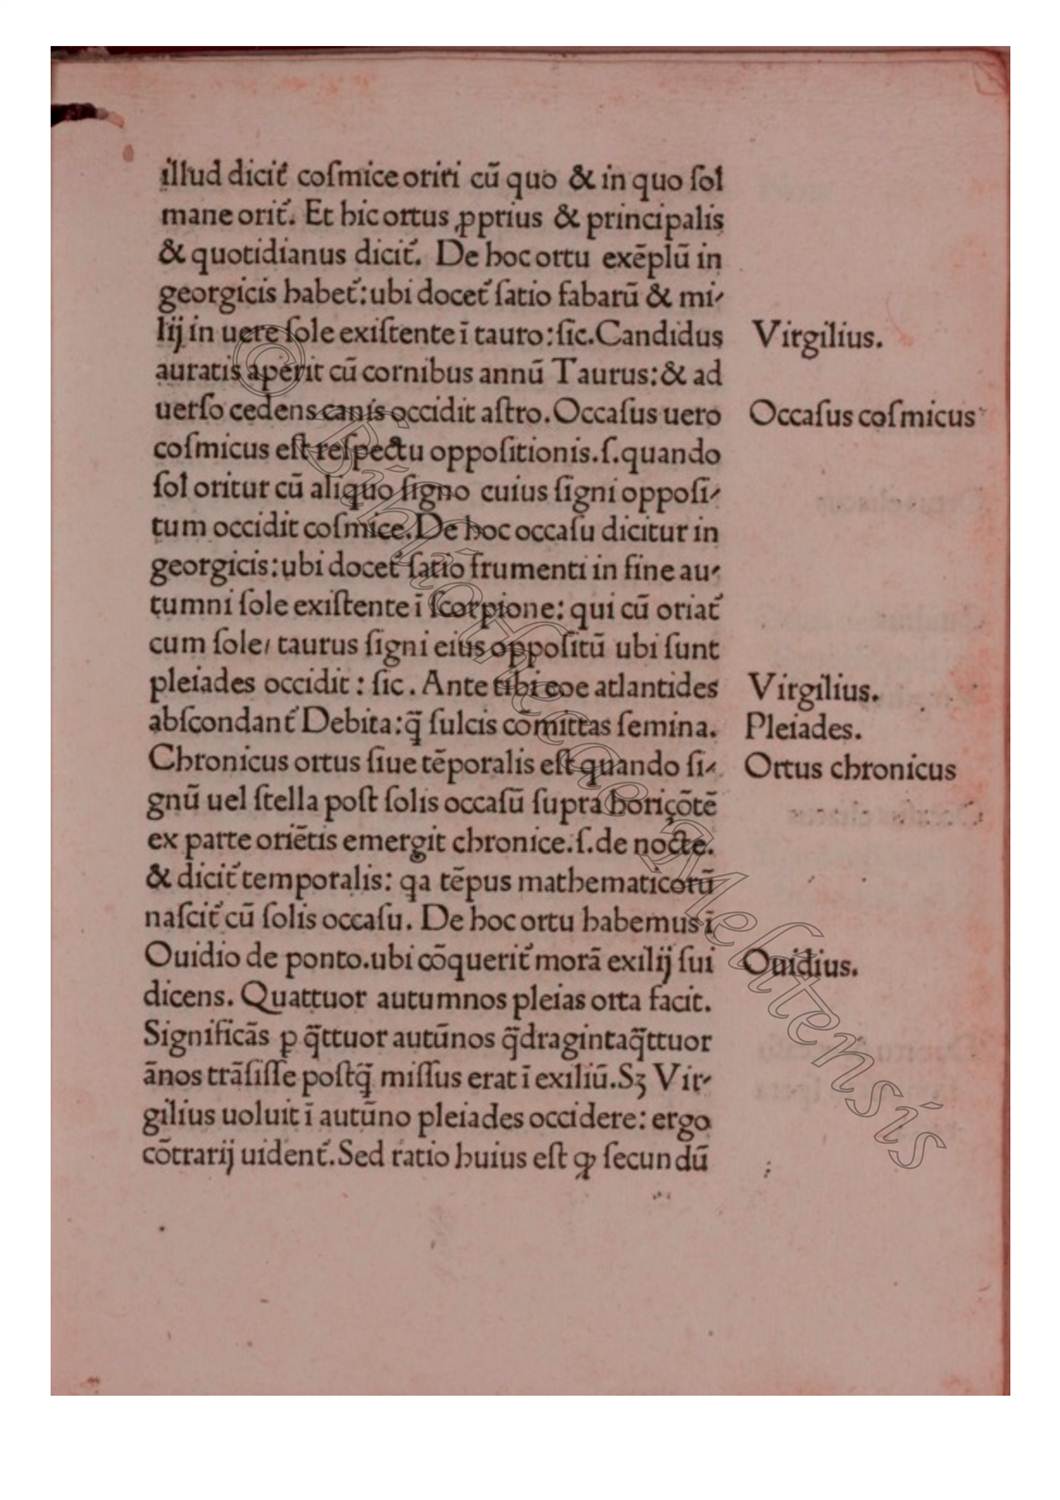 illud dicit᷑ coſmice oriri cū quo & in quo ſol
mane orit᷑. Et hic ortus ꝓprius & principalis
& quotidianus dicit᷑. De hoc ortu exēplū in
georgicis habet᷑: ubi docet᷑ ſatio fabarū & mi-
lij in uere ſole exiſtente ī tauro: ſic. Candidus
Virgilius.
auratis aperit cū cornibus annū Taurus: & ad
uerſo cedens canis occidit aſtro. Occaſus uero
Occaſus coſmicus
coſmicus eſt reſpectu oppoſitionis. ſ. quando
ſol oritur cū aliquo ſigno cuius ſigni oppoſi-
tum occidit coſmice. De hoc occaſu dicitur in
georgicis: ubi docet᷑ ſatio frumenti in fine au-
tumni ſole exiſtente ī ſcorpione: qui cū oriat᷑
cum ſole/ taurus ſigni eius oppoſitū ubi ſunt
pleiades occidit: ſic. Ante tibi eoe atlantides
Virgilius.
abſcondant᷑ Debita: q̄ ſulcis cōmittas ſemina.
Pleiades.
Chronicus ortus ſiue tēporalis eſt quando ſi-
Ortus chronicus
gnū uel ſtella poſt ſolis occaſū ſupra horiçōtē
ex parte oriētis emergit chronice. ſ. de nocte.
& dicit᷑ temporalis: qa tēpus mathematicorū
naſcit᷑ cū ſolis occaſu. De hoc ortu habemus ī
Ouidio de ponto. ubi cōquerit᷑ morā exilij ſui
Ouidius.
dicens. Quattuor autumnos pleias orta facit.
Significās p q̄ttuor autūnos q̄dragintaq̄ttuor
ānos trāſiſſe poſtq̄ miſſus erat ī exiliū. Sꝫ Vir-
gilius uoluit ī autūno pleiades occidere: ergo
cōtrarij uident᷑. Sed ratio huius eſt ꝙ ſecundū
© Bibliotheca Melitensis